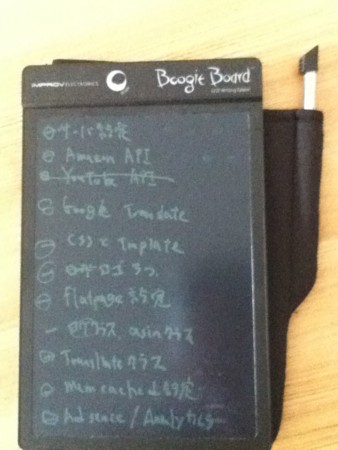 IMPROV ELECTRONICS
Boogie Board
LCD Writing Tablet
サーバ設定
Amazon API
YouTube API
Google Translate
CSSとTemplate
ロゴ
flatpage 設定
クラス, asinクラス
Translateクラス
memcached設定
Adsence / Analytics